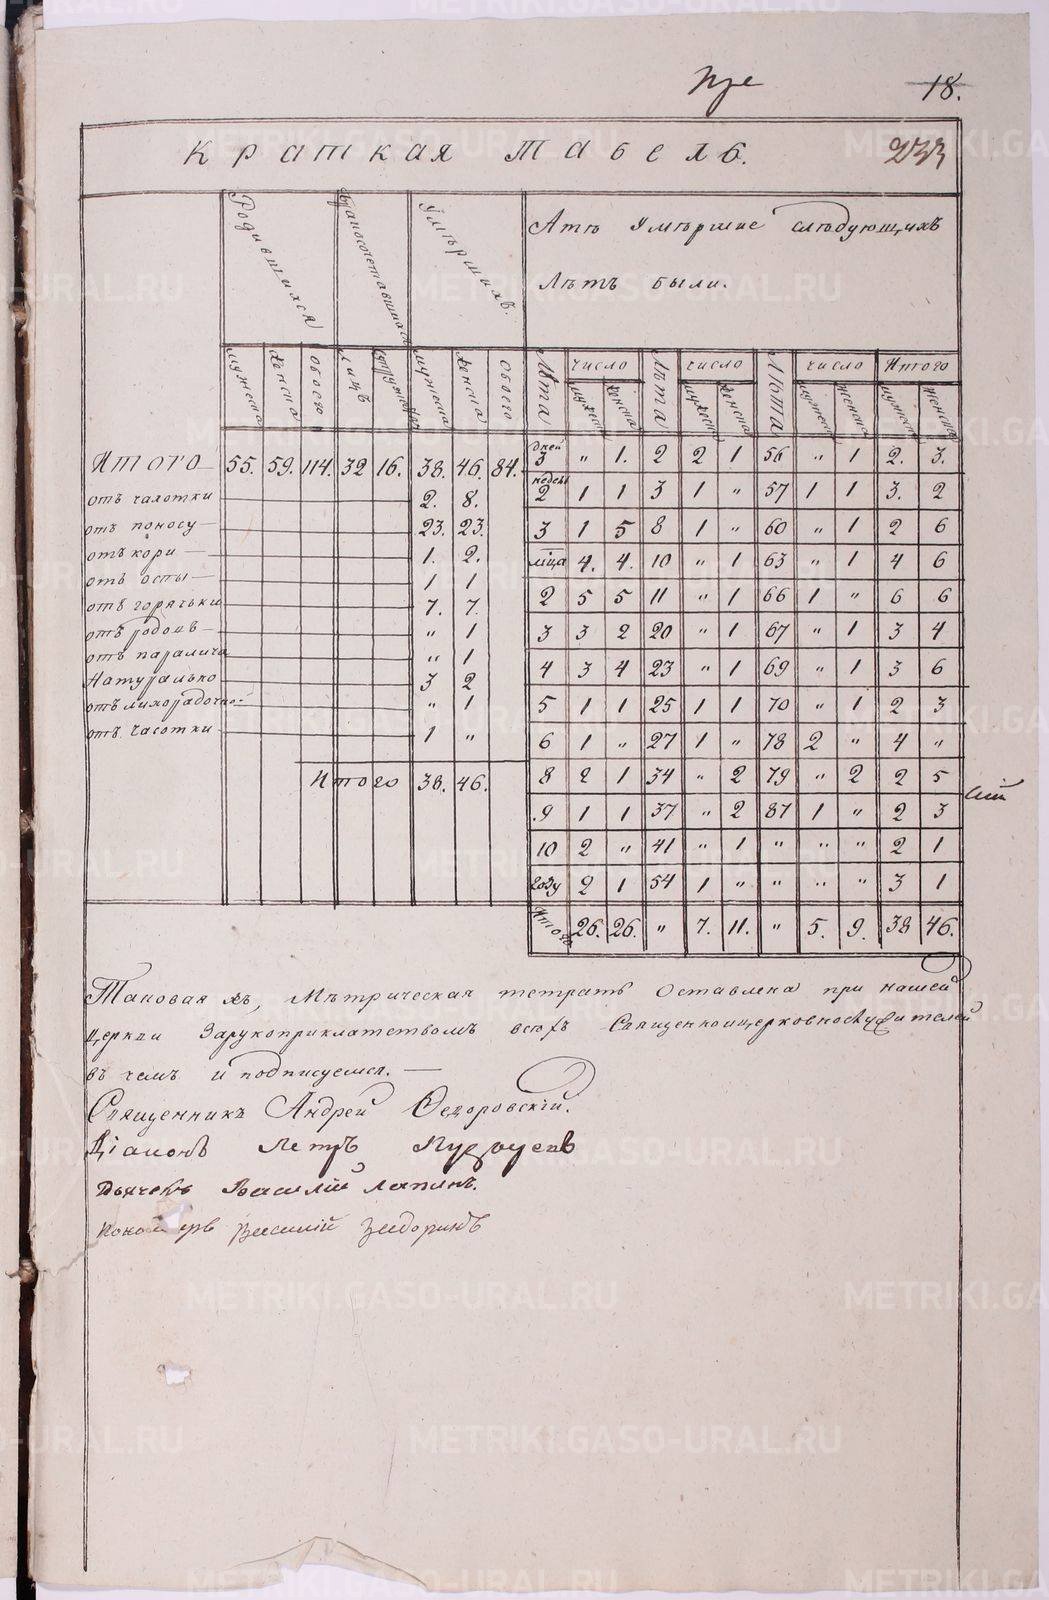 18.
Краткая Табель.
233
Родившихся
Бракосочетавшихся
Умѣршихъ.
А тѣ Умѣршие слѣдующихъ
Лѣтъ были.
мужеска женска обоего лицъ мужеска женска обоего Лѣта число Лѣта число Лѣта число Итого
мужеска женска мужеска женска мужеска женска мужеска женска
Итого 55. 59. 114. 32 16. 38. 46. 84. дней 3 " 1. 2 2 1 56 " 1 2. 3.
отъ чахотки 2. 8. недель 2 1 1 3 1 " 57 1 1 3. 2
отъ поносу 23. 23. 3 1 5 8 1 " 60 " 1 2 6
отъ кори 1. 2. мца 4. 4. 10 " 1 63 " 1 4 6
отъ оспы 1 1 2 5 5 11 " 1 66 1 " 6 6
отъ горячьки 7. 7. 3 3 2 20 " 1 67 " 1 3 4
отъ родовъ " 1
отъ паралича " 1 4 3 4 23 " 1 69 " 1 3 6
Натурально 3 2
отъ лихорадочно " 1 5 1 1 25 1 1 70 " 1 2 3
отъ часотки 1 " 6 1 " 27 1 " 78 2 " 4 "
Итого 38. 46. 8 2 1 34 " 2 79 " 2 2 5
9 1 1 37 " 2 87 1 " 2 3
10 2 " 41 " 1 " " " 2 1
году 2 1 54 1 " " " " 3 1
Итого 26. 26. " 7. 11. " 5. 9. 38 46.
Таковая жъ, Мѣтрическая тетрать Оставлена при нашей
Церкви Зарукоприклатствомъ всѣхъ Священноицерковнослужителей
въ чемъ и подписуемся. —
Священникъ Андрей Ѳедоровскій.
Діаконъ Петръ
Дьячекъ Василій Лапинъ.
Василій
METRIKI.GASO-URAL.RU